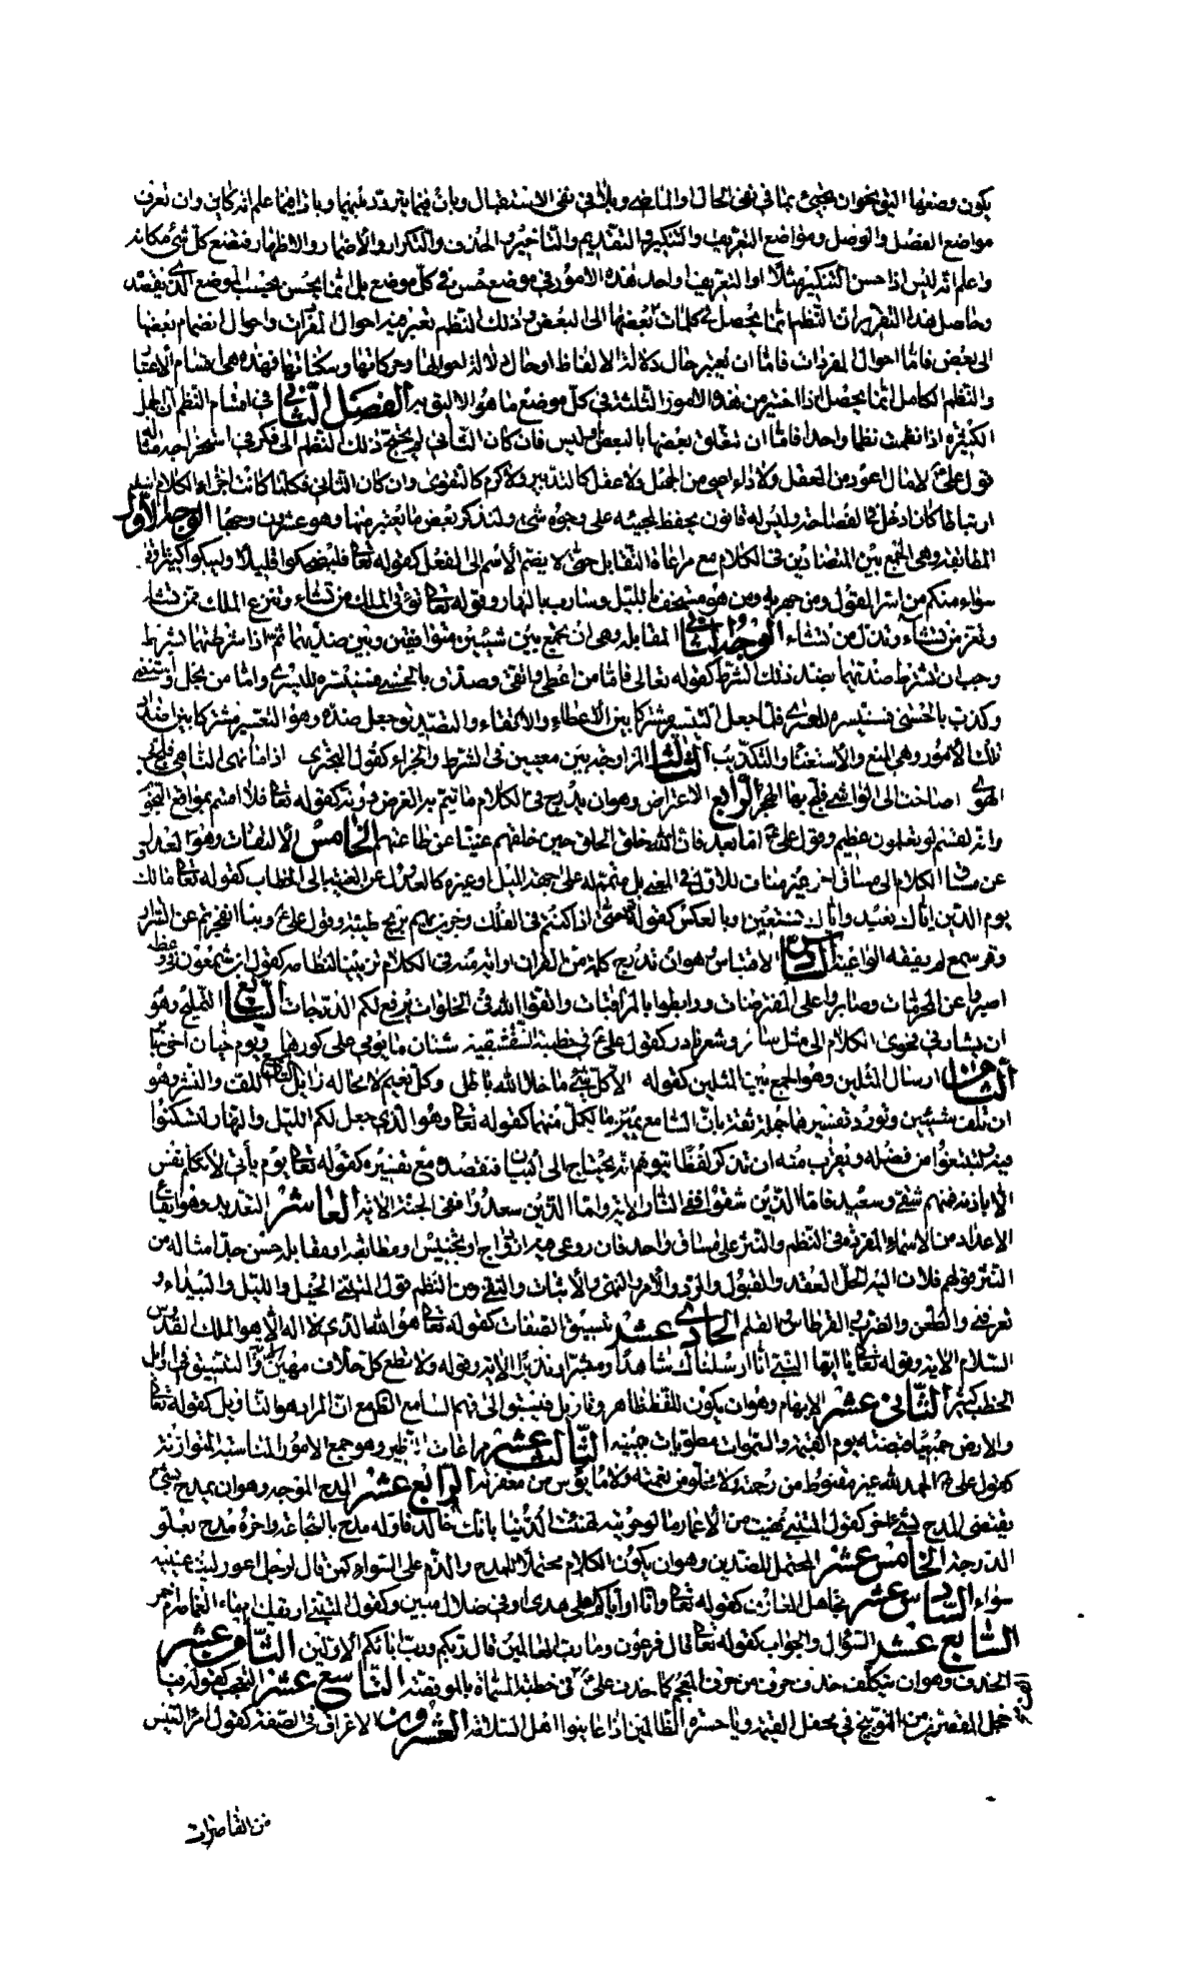 يكون وضعها اليق نحو ان يجيئ بما في نفى الحال والماضى وبلا في نفى الاستقبال وبان فيما يتردد بينهما وباذا فيما علم انه كاين وان تعرف
مواضع الفصل والوصل ومواضع التعريف والتنكير والتقديم والتاخير والحذف والتكرار والاضمار والاظهار فتضع كل شئ مكانه
واعلم انه ليس اذا حسن التنكير مثلا او التعريف او احد هذه الامور في موضع حسن في كل موضع بل انما يحسن بحسب الموضع الذي يقصد
وحاصل هذا التقرير ان النظم انما يحصل في كلمات بعضها الى البعض وذلك النظم تعتبر فيه احوال المفردات واحوال انضمام بعضها
الى بعض فاما احوال المفردات فاما ان يعتبر حال دلالة الالفاظ او حال دلالة احوالها وحركاتها وسكناتها فهذه هى اقسام الاعتبا
والنظم الكامل انما يحصل اذا اختير من هذه الامور الثلثة في كل موضع ما هو الاليق به الفصل الثاني في اقسام النظم ان الجمل
الكثيرة اذا نظمت نظما واحدا فاما ان تتعلق بعضها بالبعض او ليس فان كان الثاني لم يحتج ذلك النظم الى فكر في استخراجه مثاله
قول علي لا مال اعود من العقل ولا داء اعيى من الجهل ولا عقل كالتدبير ولا كرم كالتقوى وان كان الثاني فكلما كانت اجزاء الكلام اشد
ارتباطا كان ادخل في الفصاحة وليس له قانون يحفظ لمجيئه على وجوه شتى ولنذكر بعض ما يعتبر منها وهو عشرون وجها الوجه الاول
المطابقة وهى الجمع بين المتضادين في الكلام مع مراعاة التقابل حتى لا يضم الاسم الى الفعل كقوله تعا فليضحكوا قليلا وليبكوا كثيرا وقوله
سواء منكم من اسر القول ومن جهر به ومن هو مستخف بالليل وسارب بالنهار وقوله تعا تؤتى الملك من تشاء وتنزع الملك ممن تشاء
وتعز من تشاء وتذل من تشاء الوجه الثاني المقابلة وهى ان يجمع بين شيئين متوافقين وبين ضديهما ثم اذا شرطتهما بشرط
وجب ان تشترط ضديهما بضد ذلك الشرط كقوله تعالى فاما من اعطى واتقى وصدق بالحسنى فسنيسره لليسرى واما من بخل واستغنى
وكذب بالحسنى فسنيسره للعسرى فلما جعل التيسير مشتركا بين الاعطاء والاتقاء والتصديق جعل ضده وهو التعسير مشتركا بين اضداد
تلك الامور وهى المنع والاستغناء والتكذيب الثالث المزاوجة بين معنيين في الشرط والجزاء كقول البحتري اذا ما نهى الناهي فلج بي
الهوى اصاخت الى الواشي فلج بها الهجر الرابع الاعتراض وهو ان يدرج في الكلام ما يتم به الغرض دونه كقوله تعا فلا اقسم بمواقع النجو
وانه لقسم لو تعلمون عظيم وقول علي اما بعد فان الله خلق الخلق حين خلقهم غنيا عن طاعتهم الخامس الالتفات وهو العدول
عن مساق الكلام الى مساق اخر غير مناف للاول في المعنى بل متمم له على جهة المثل او غيره كالعدول عن الغيبة الى الخطاب كقوله تعا مالك
يوم الدين اياك نعبد واياك نستعين وبالعكس كقوله تعا حتى اذا كنتم في الفلك وجرين بهم بريح طيبة وقول علي وبنا انفجرتم عن السرار
وقر سمع لم يفقه الواعية السادس الاقتباس وهو ان ندرج كلمة من القران او اية منه في الكلام تزيينا لنظامه كقول ابن شمعون في وعظه
اصبروا عن المحرمات وصابروا على المفترضات ورابطوا بالمراقبات واتقوا الله في الخلوات يرفع لكم الدرجات السابع التلميح وهو
ان يشار في فحوى الكلام الى مثل سائر وشعر نادر كقول علي في خطبته الشقشقية شتان ما يومي على كورها ويوم حيان اخى جابر
الثامن ارسال المثلين وهو الجمع بين المثلين كقوله الا كل شئ ما خلا الله باطل وكل نعيم لا محالة زايل التاسع اللف والنشر وهو
ان تلف شيئين وتورد تفسيرهما جملة ثقة بان السامع يميز ما لكل منهما كقوله تعا وهو الذي جعل لكم الليل والنهار لتسكنوا
فيه ولتبتغوا من فضله ويقرب منه ان تذكر لفظا يتوهم انه يحتاج الى البيان فتقصده مع تفسيره كقوله تعا يوم يأتى لا تكلم نفس
الا باذنه فمنهم شقى وسعيد فاما الذين شقوا ففي النار الاية واما الذين سعدوا ففي الجنة الاية العاشر التعديد وهو ايقاع
الاعداد من الاسماء المفردة في النظم والنثر على مساق واحد فان روعى فيه ازدواج او تجنيس او مطابقة او مقابلة حسن جدا مثاله من
النثر قولهم فلان اليه الحل والعقد والقبول والرد والامر والنهى والاثبات والنفى ومن النظم قول المتنبى الخيل والليل والبيداء
تعرفني والطعن والضرب والقرطاس والقلم الحادى عشر تنسيق الصفات كقوله تعا هو الله الذي لا اله الا هو الملك القدوس
السلام الاية وقوله تعا يا ايها النبي انا ارسلناك شاهدا ومبشرا ونذيرا الاية وقوله ولا تطع كل حلاف مهين والتنسيق في اوايل
الخطب كثير الثاني عشر الايهام وهو ان يكون للفظ ظاهر وتاويل فيسبق الى فهم السامع الظاهر مع ان المراد هو التاويل كقوله تعا
والارض جميعا قبضته يوم القيمة والسموات مطويات بيمينه الثالث عشر مراعات النظير وهو جمع الامور المناسبة المتوازنة
كقول علي الحمد لله غير مقنوط من رحمته ولا مخلو من نعمته ولا مأيوس من مغفرته الرابع عشر المدح الموجه وهو ان يمدح بشئ
يقتضى المدح بشئ اخر كقول المتنبى نهبت من الاعمار ما لو حويته لهنئت الدنيا بانك خالد فاوله مدح بالشجاعة واخره مدح بعلو
الدرجة الخامس عشر المحتمل للضدين وهو ان يكون الكلام محتملا للمدح والذم على السواء كمن قال لرجل اعور ليت عينيه
سواء السادس عشر تجاهل العارف كقوله تعا وانا او اياكم لعلى هدى او في ضلال مبين وكقول المتنبى اريقك ام ماء الغمامة ام خمر
السابع عشر السؤال والجواب كقوله تعا قال فرعون وما رب العالمين قال ربكم ورب ابائكم الاولين الثامن عشر
الحذف وهو ان يتكلف حذف حرف من حروف المعجم كما حذف علي في خطبته المسماة بالموقصة التاسع عشر التعجب كقوله فيا
خجل المقصرين من التوبيخ في محفل القيمة ويا حسرة الظالمين اذا عاينوا اهل السلامة العشرون الاغراق في الصفة كقول امرء القيس
من القاصرات